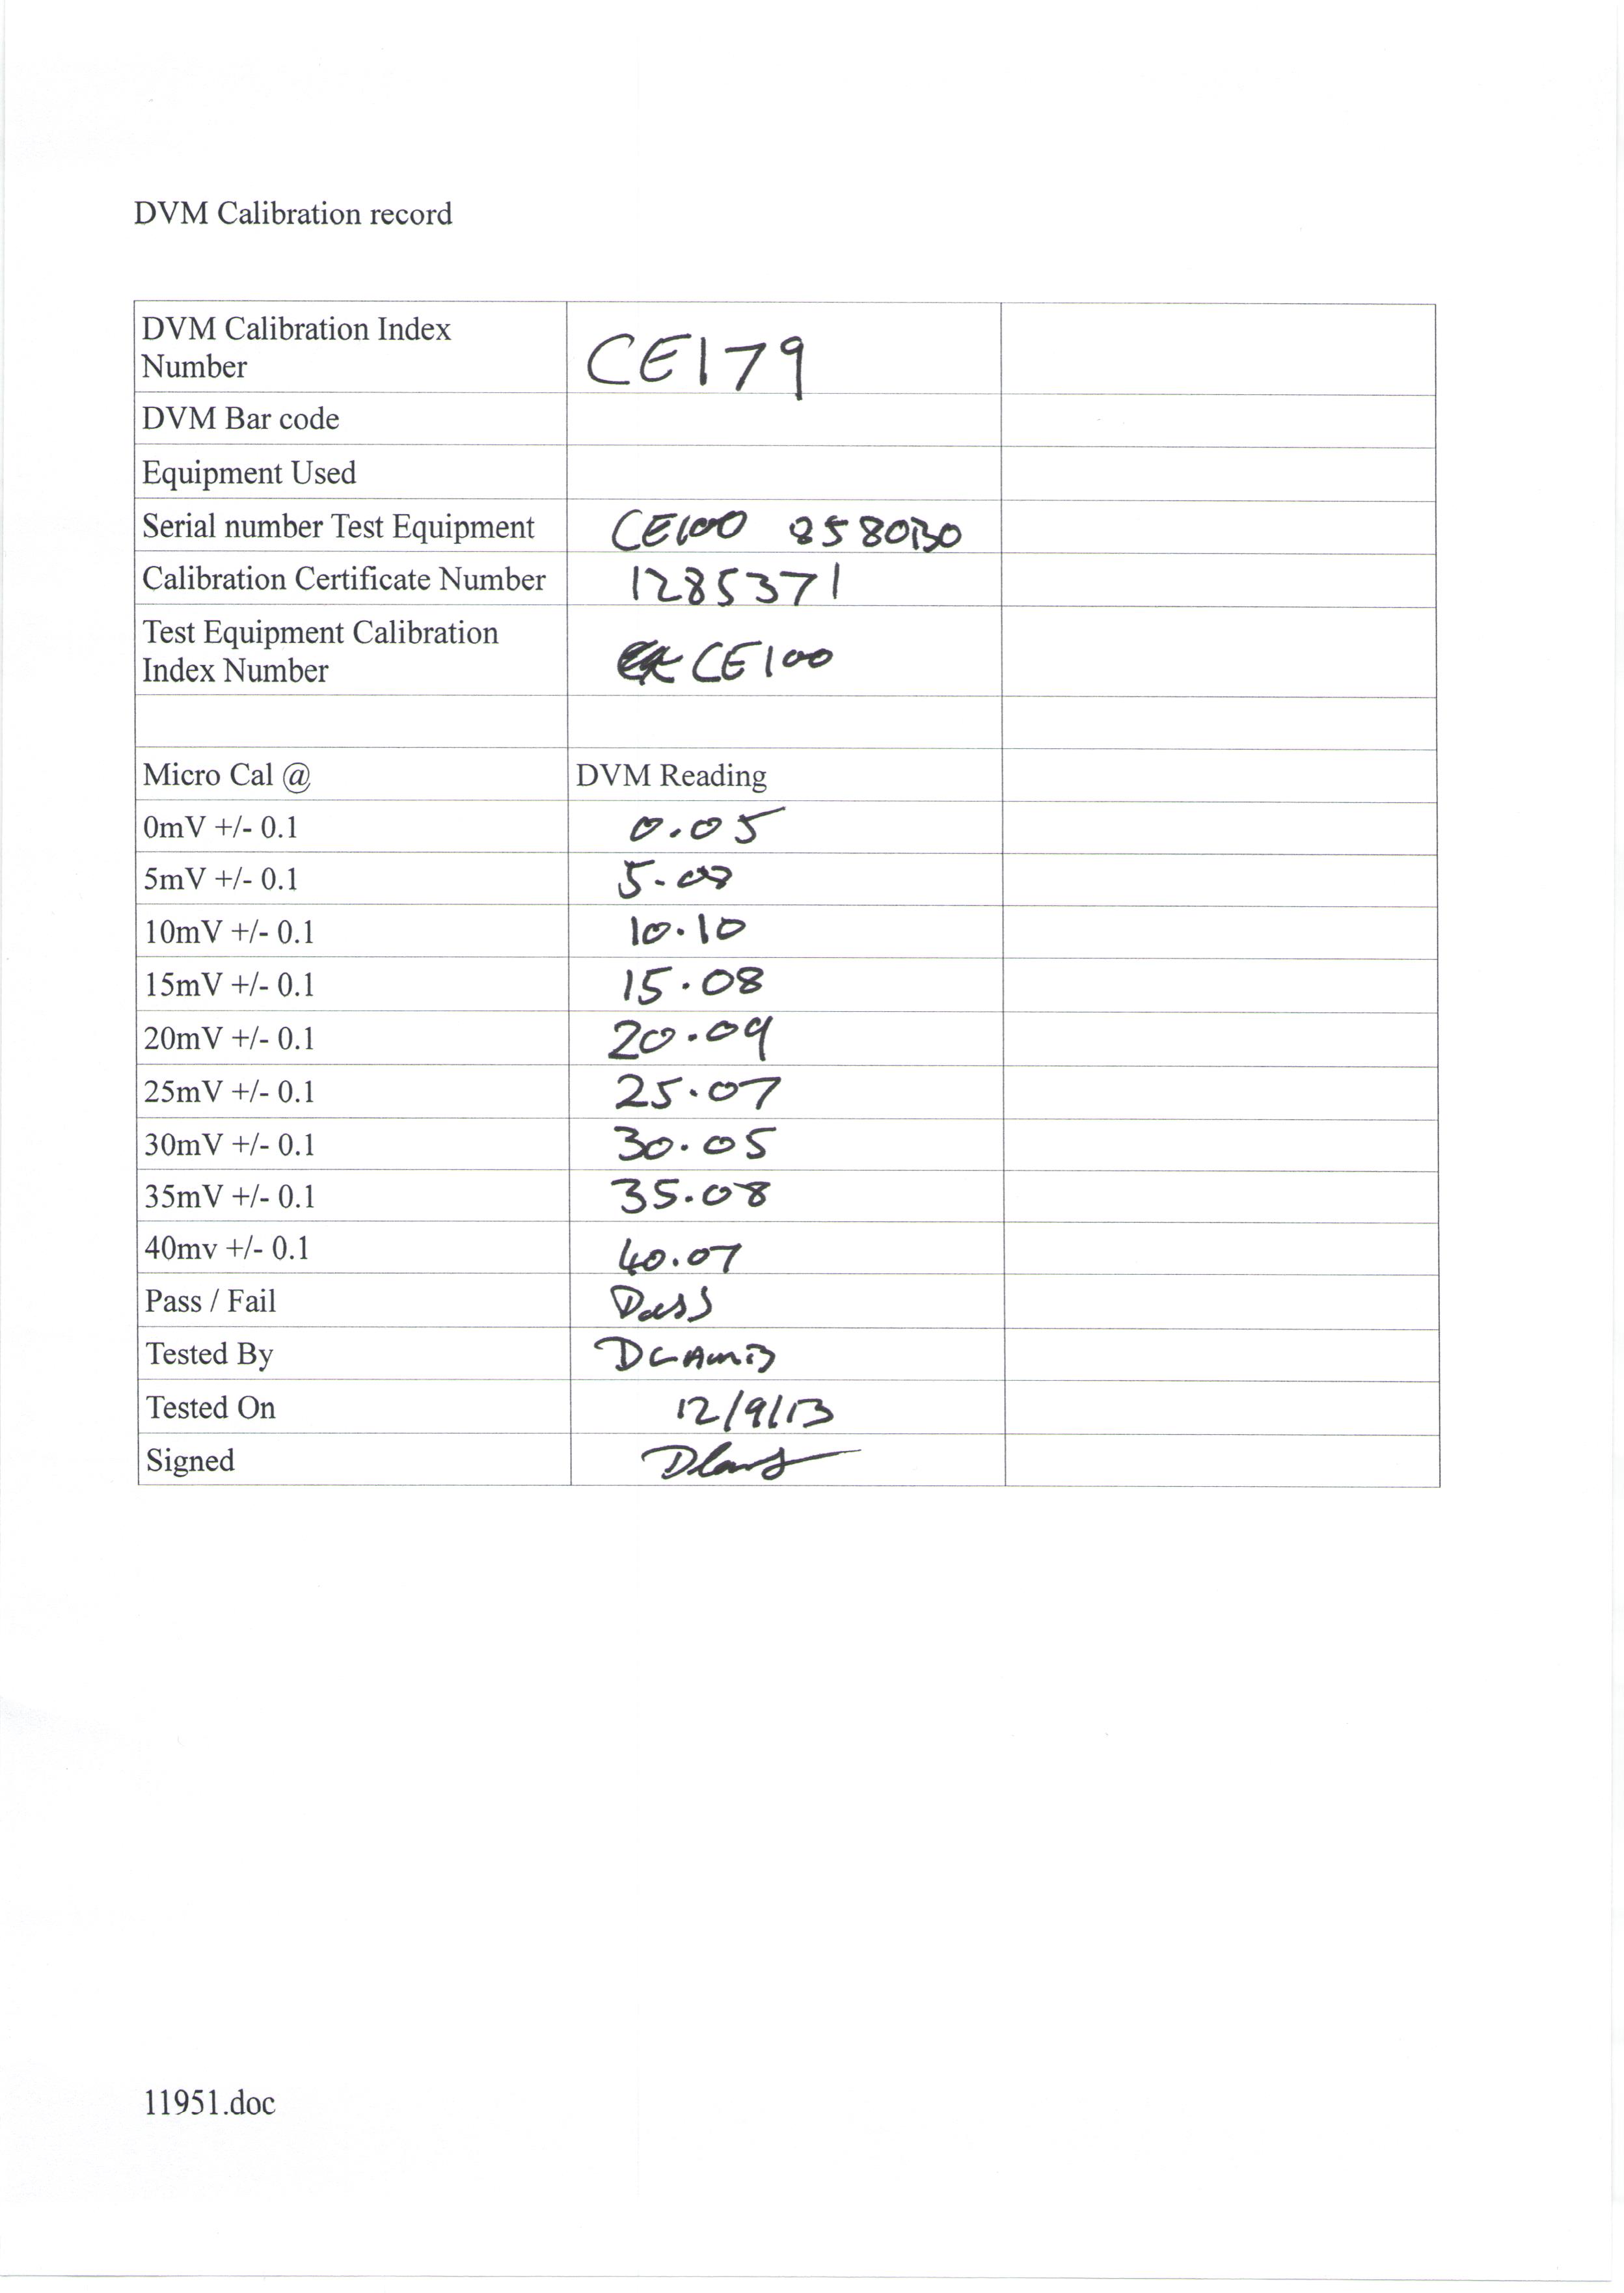 DVM Calibration record
DVM Calibration Index
Number
CE179
DVM Bar code
Equipment Used
Serial number Test Equipment CE100 858030
Calibration Certificate Number 1285371
Test Equipment Calibration
Index Number
CE100
Micro Cal @ DVM Reading
0mV +/- 0.1 0.05
5mV +/- 0.1 5.07
10mV +/- 0.1 10.10
15mV +/- 0.1 15.08
20mV +/- 0.1 20.09
25mV +/- 0.1 25.07
30mV +/- 0.1 30.05
35mV +/- 0.1 35.08
40mv +/- 0.1 40.07
Pass / Fail Pass
Tested By
Tested On 12/9/13
Signed
11951.doc